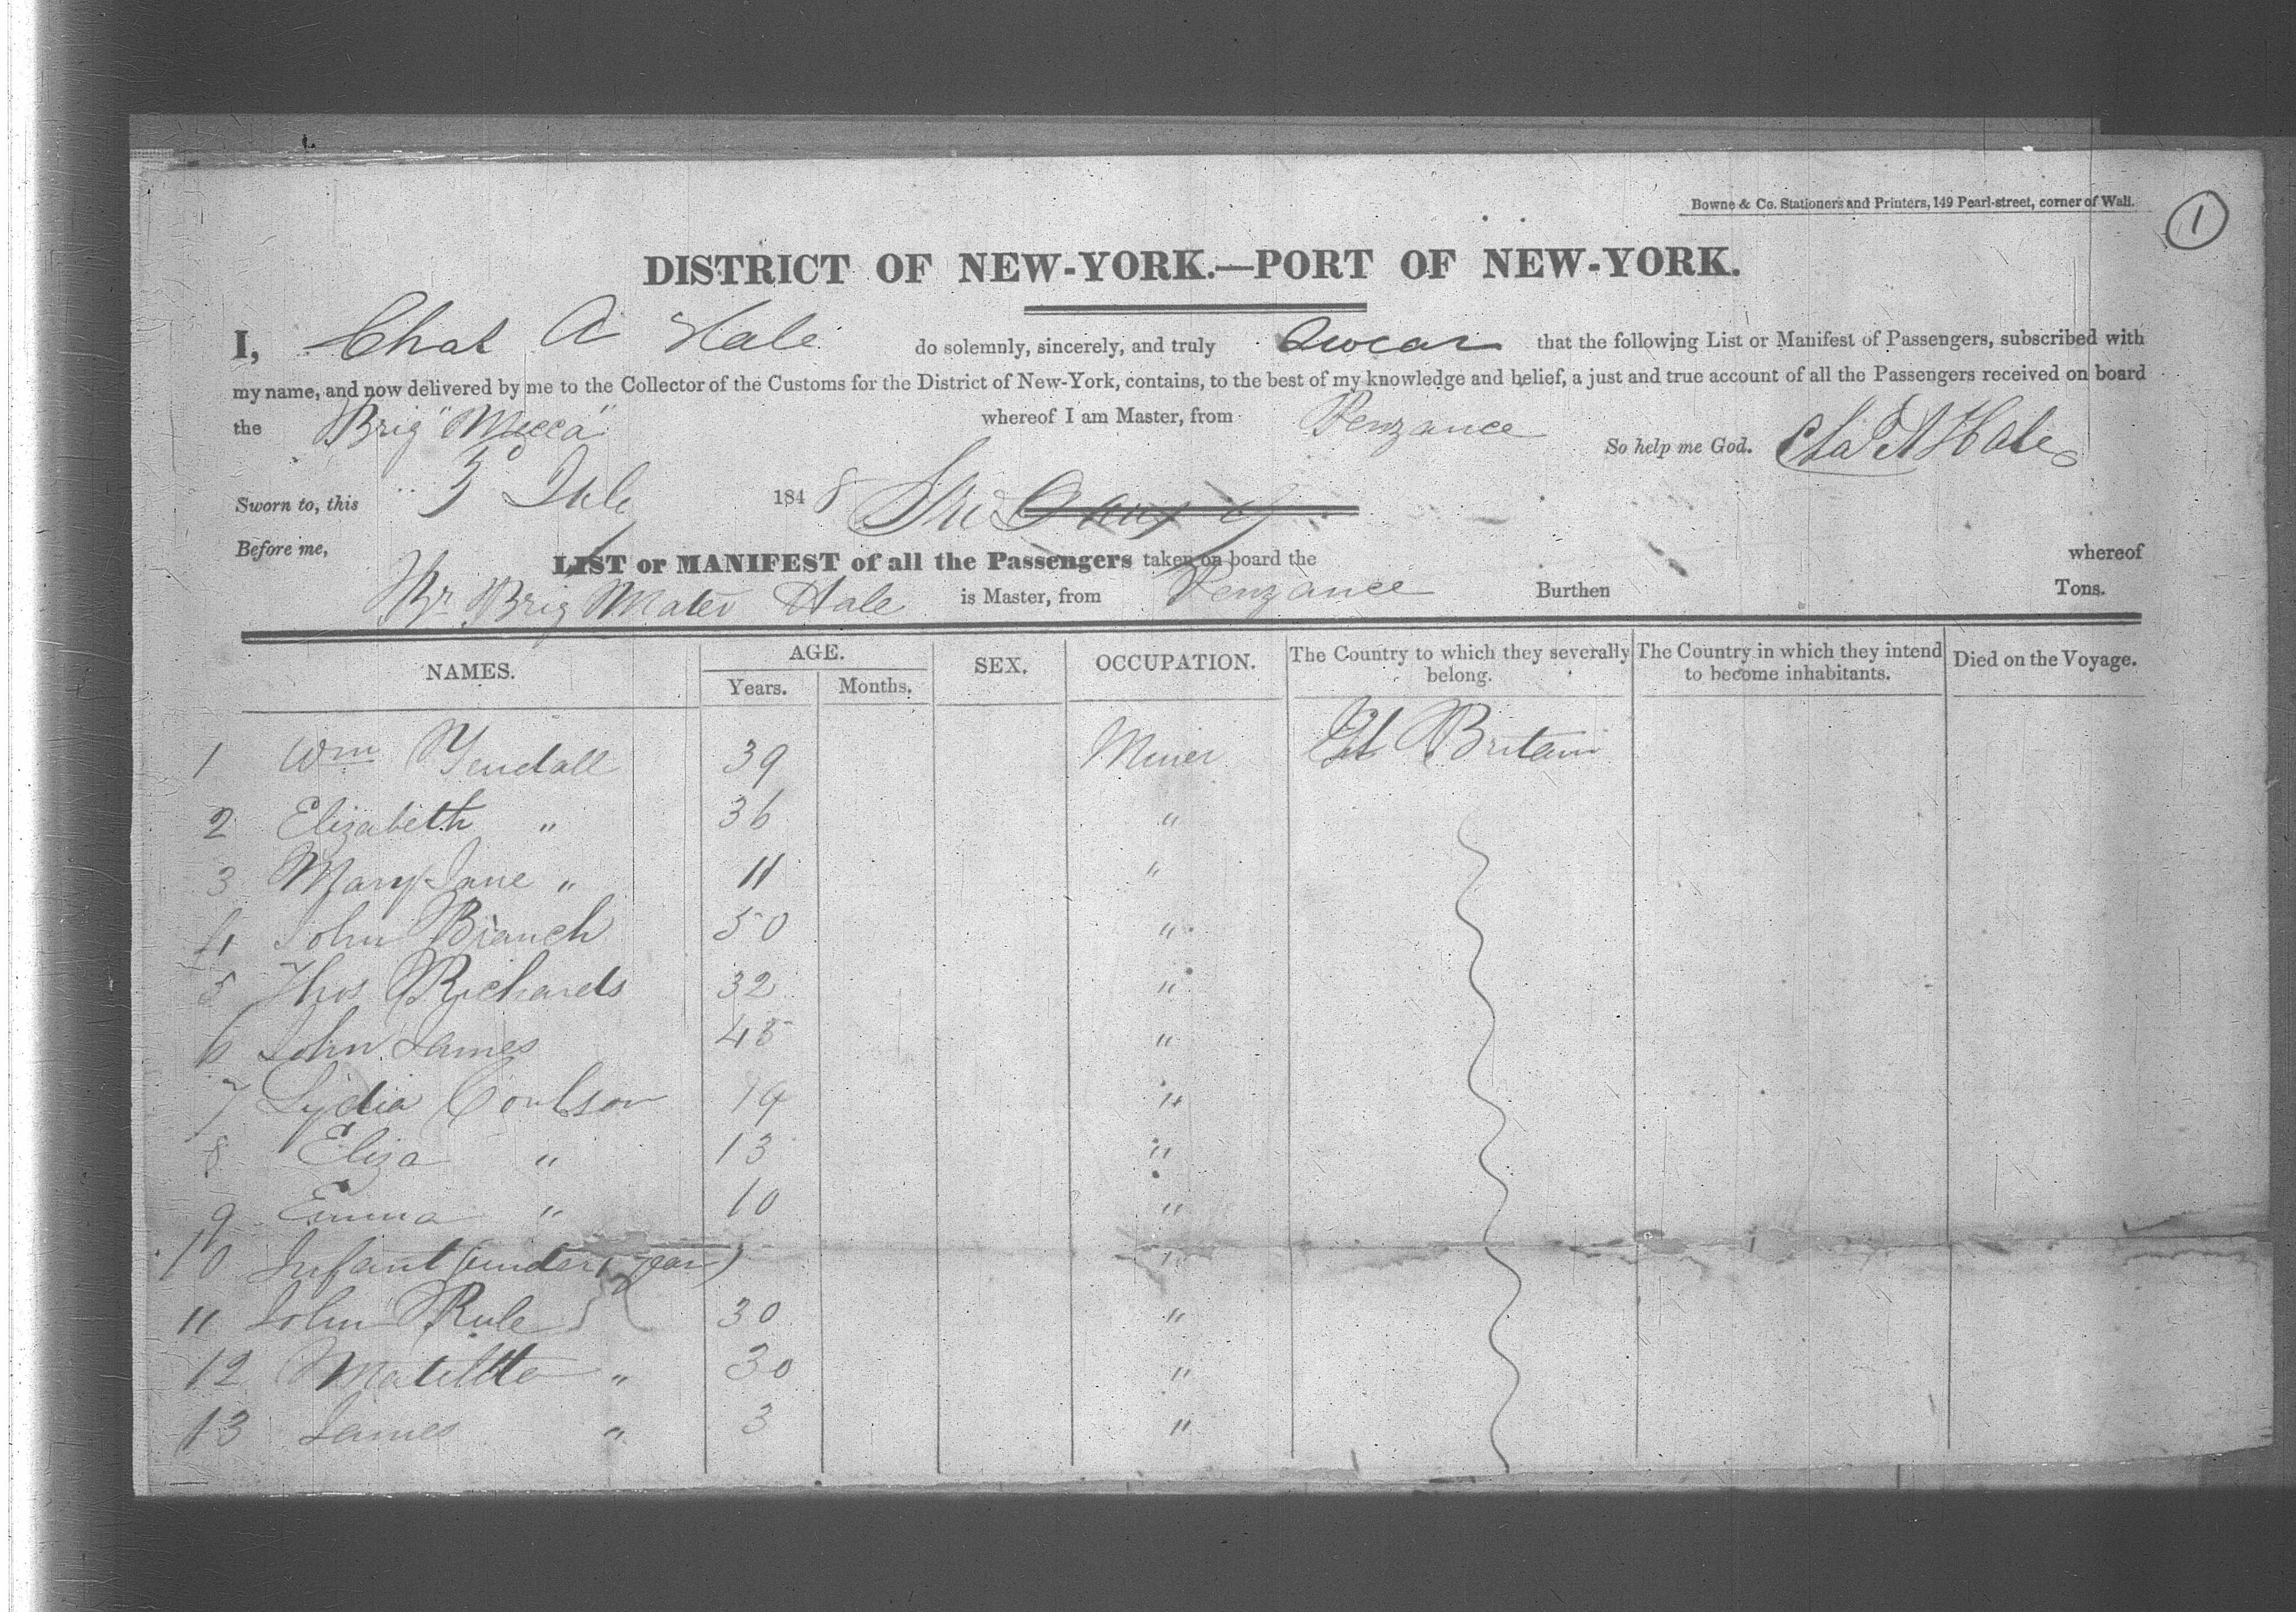 Bowne & Co. Stationers and Printers, 149 Pearl-street, corner of Wall.
1
DISTRICT OF NEW-YORK.—PORT OF NEW-YORK.
I, Chas A Hale do solemnly, sincerely, and truly Swear that the following List or Manifest of Passengers, subscribed with
my name, and now delivered by me to the Collector of the Customs for the District of New-York, contains, to the best of my knowledge and belief, a just and true account of all the Passengers received on board
the Brig "Mecca" whereof I am Master, from Penzance
So help me God. Chas A Hale
Sworn to, this 5 July 1848
Before me,
LIST or MANIFEST of all the Passengers taken on board the whereof
Br Brig Hale is Master, from Penzance Burthen Tons.
NAMES. AGE. SEX. OCCUPATION. The Country to which they severally belong. The Country in which they intend to become inhabitants. Died on the Voyage.
Years. Months.
1 Wm Yendall 39 Miner Gt Britain
2 Elizabeth " 36 "
3 Mary Jane " 11 "
4 John Branch 50 "
5 Thos Richards 32 "
6 John James 45 "
7 Lydia Coulson 19 "
8 Eliza " 13 "
9 Emma " 10 "
10 Infant (under 1 year) "
11 John Rule 30 "
12 " 30 "
13 James " 3 "